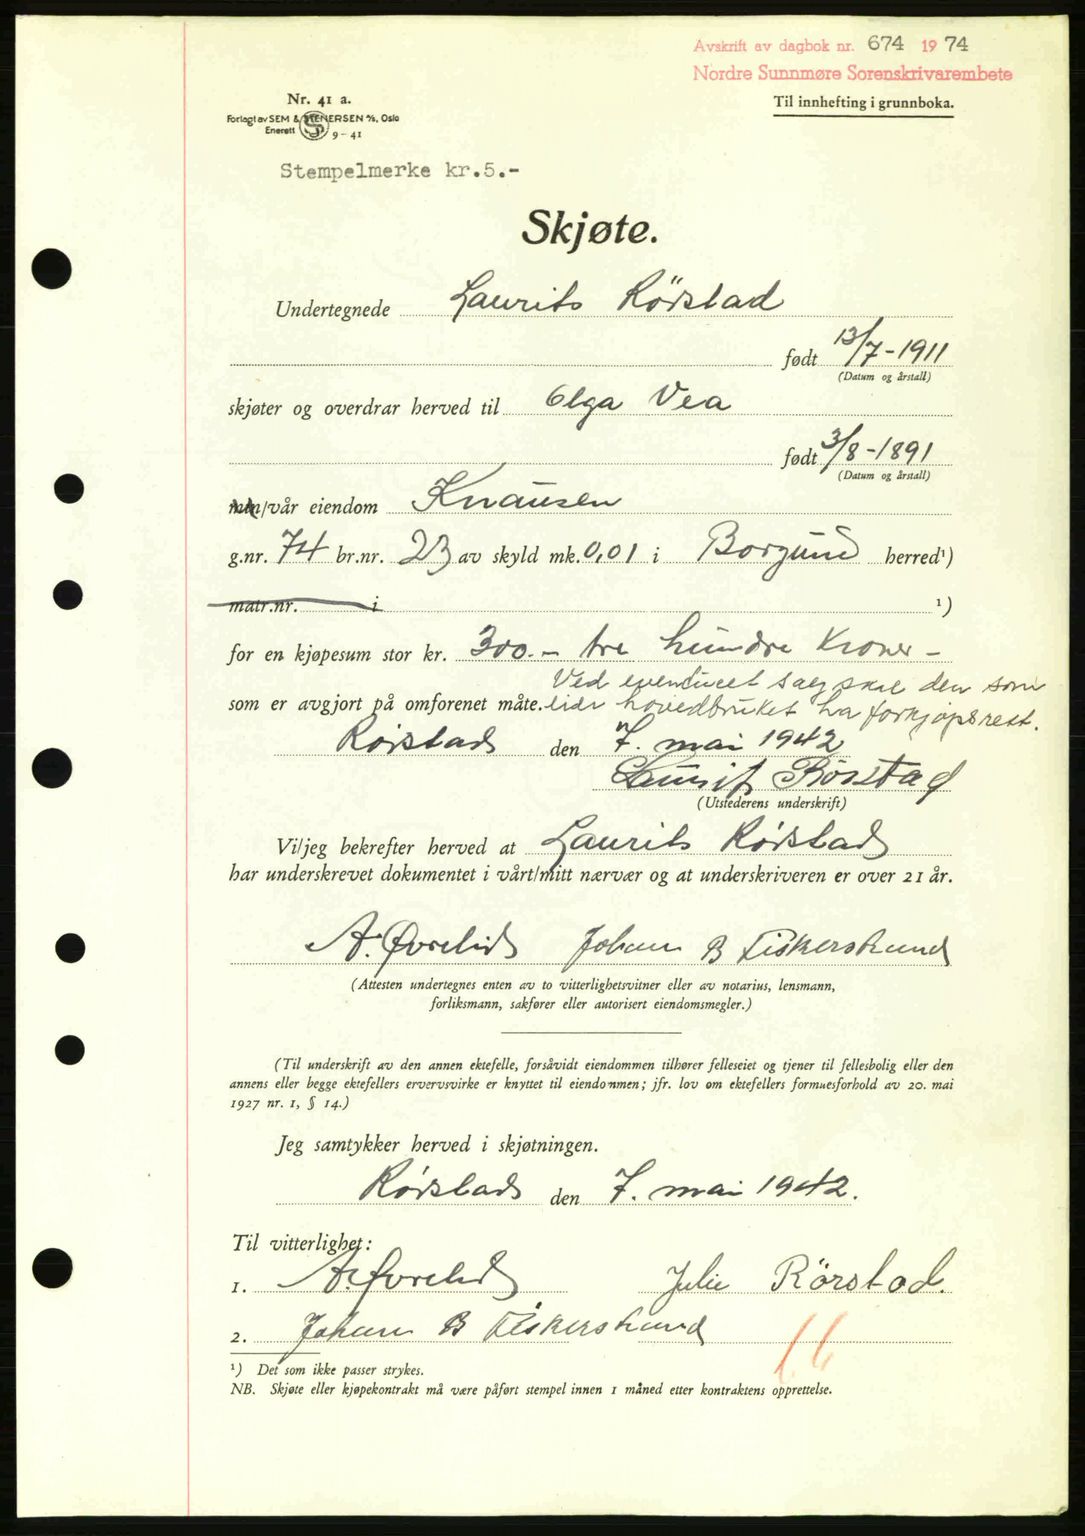 Avskrift av dagbok nr. 674 1974
Nordre Sunnmøre Sorenskrivarembete
Til innhefting i grunnboka.
Nr. 41 a.
Forlagt av SEM & STENERSEN A/S, Oslo
Enerett 9-41
Stempelmerke kr.5.-
Skjøte.
Undertegnede Laurits Rörstad
født 13/7-1911
(Datum og årstall)
skjøter og overdrar herved til Olga Vea
født 3/8-1891
(Datum og årstall)
min/vår eiendom Knausen
g.nr. 74 br.nr. 23 av skyld mk. 0,01 i Borgund herred¹)
matr.nr. i ¹)
for en kjøpesum stor kr. 300.- tre hundre Kroner -
Ved eventuelt salg skal den som
som er avgjort på omforenet måte. eier hovedbruket ha forkjøpsrett.
Rörstad den 7. mai 1942
Laurits Rörstad
(Utstederens underskrift)
Vi/jeg bekrefter herved at Laurits Rörstad
har underskrevet dokumentet i vårt/mitt nærvær og at underskriveren er over 21 år.
A. Øvrelid Johan B Fiskerstrand
(Attesten undertegnes enten av to vitterlighetsvitner eller av notarius, lensmann,
forliksmann, sakfører eller autorisert eiendomsmegler.)
(Til underskrift av den annen ektefelle, forsåvidt eiendommen tilhører felleseiet og tjener til fellesbolig eller den
annens eller begge ektefellers ervervsvirke er knyttet til eiendommen; jfr. lov om ektefellers formuesforhold av 20. mai
1927 nr. 1, § 14.)
Jeg samtykker herved i skjøtningen.
Rörstad den 7. mai 1942.
Til vitterlighet:
1. A. Øvrelid Julie Rörstad.
2. Johan B Fiskerstrand
¹) Det som ikke passer strykes.
NB. Skjøte eller kjøpekontrakt må være påført stempel innen 1 måned etter kontraktens opprettelse.